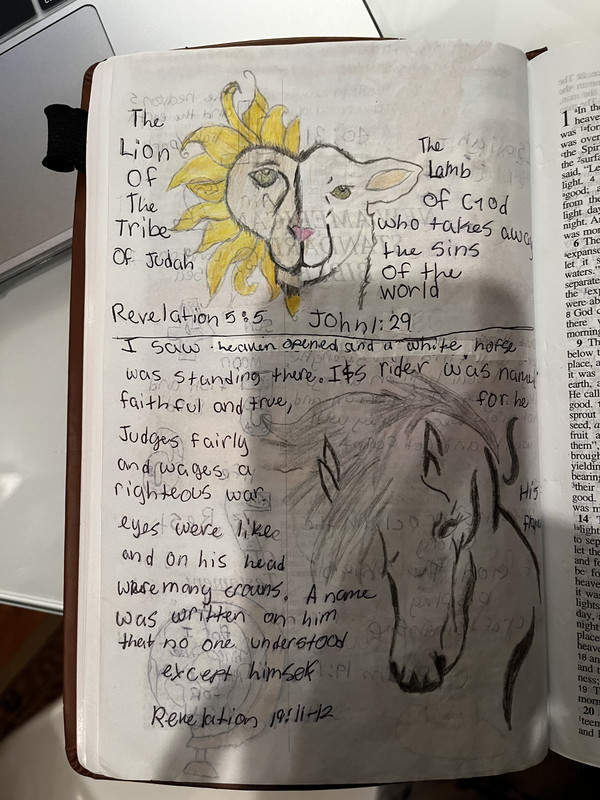 The
Lion
Of
The
Tribe
Of Judah
The
Lamb
of God
who takes away
the sins
Of the
world
Revelation 5:5 John 1:29
I saw heaven opened and a white horse
was standing there. Its rider was named
faithful and true, for he
Judges fairly
and wages a
righteous war. His
eyes were like
and on his head
were many crowns. A name
was written on him
that no one understood
except himself
Revelation 19:11-12
1 In the
heave
was for
was over
the Spir
the surfa
said, "Le
light. 4
good; a
from the
light day
night. Ar
was mor
6 The
expanse
let it s
waters."
separate
the exp
were ab
8 God c
there v
morning
9 Th
below t
place, a
it was
earth, a
He calle
good. t
sprout
seed, a
fruit a
them",
brough
yieldin
bearing
their
good.
was m
14 T
light
to sep
let the
and fo
be fo
heave
it was
lights,
day, a
night
place
heave
18 an
and t
ness;
19 T
morn
20
teem
and l